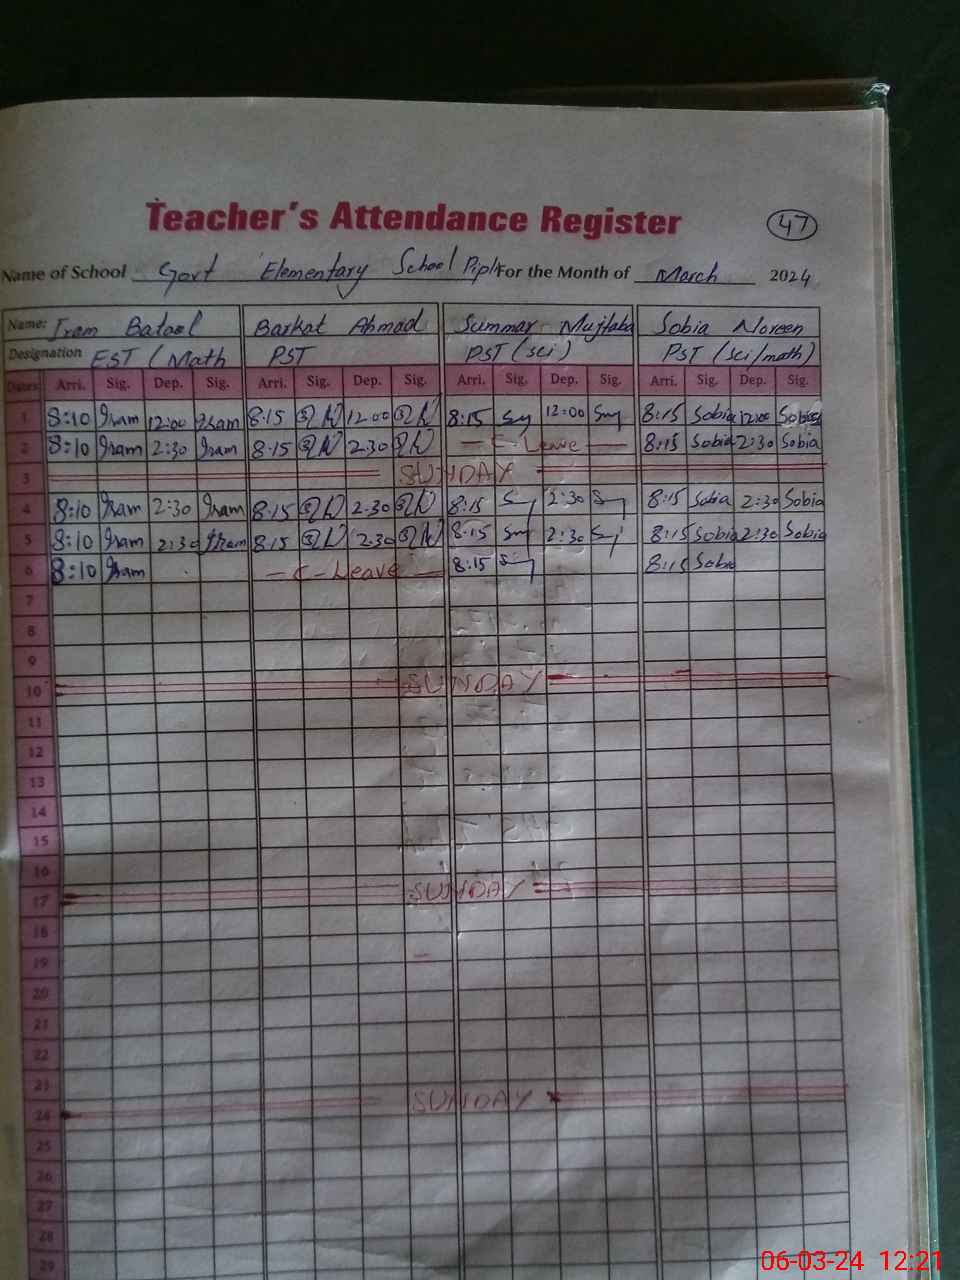 Teacher's Attendance Register 47
Name of School Govt Elementary School Pipl For the Month of March 2024
Name: Iram Batool Barkat Ahmad Summar Mujtaba Sobia Noreen
Designation EST (Math PST PST (sci) PST (sci/math)
Dates Arri. Sig. Dep. Sig. Arri. Sig. Dep. Sig. Arri. Sig. Dep. Sig. Arri. Sig. Dep. Sig.
1 8:10 Iram 12:00 Iram 8:15 12:00 8:15 12:00 8:15 Sobia 12:00 Sobia
2 8:10 Iram 2:30 Iram 8:15 2:30 - C - Leave - 8:15 Sobia 2:30 Sobia
3 SUNDAY
4 8:10 Iram 2:30 Iram 8:15 2:30 8:15 2:30 8:15 Sobia 2:30 Sobia
5 8:10 Iram 2:30 Iram 8:15 2:30 8:15 2:30 8:15 Sobia 2:30 Sobia
6 8:10 Iram - C - Leave - 8:15 8:15 Sobia
7
8
9
10 SUNDAY
11
12
13
14
15
16
17 SUNDAY
18
19
20
21
22
23
24 SUNDAY
25
26
27
28
29
06-03-24 12:21